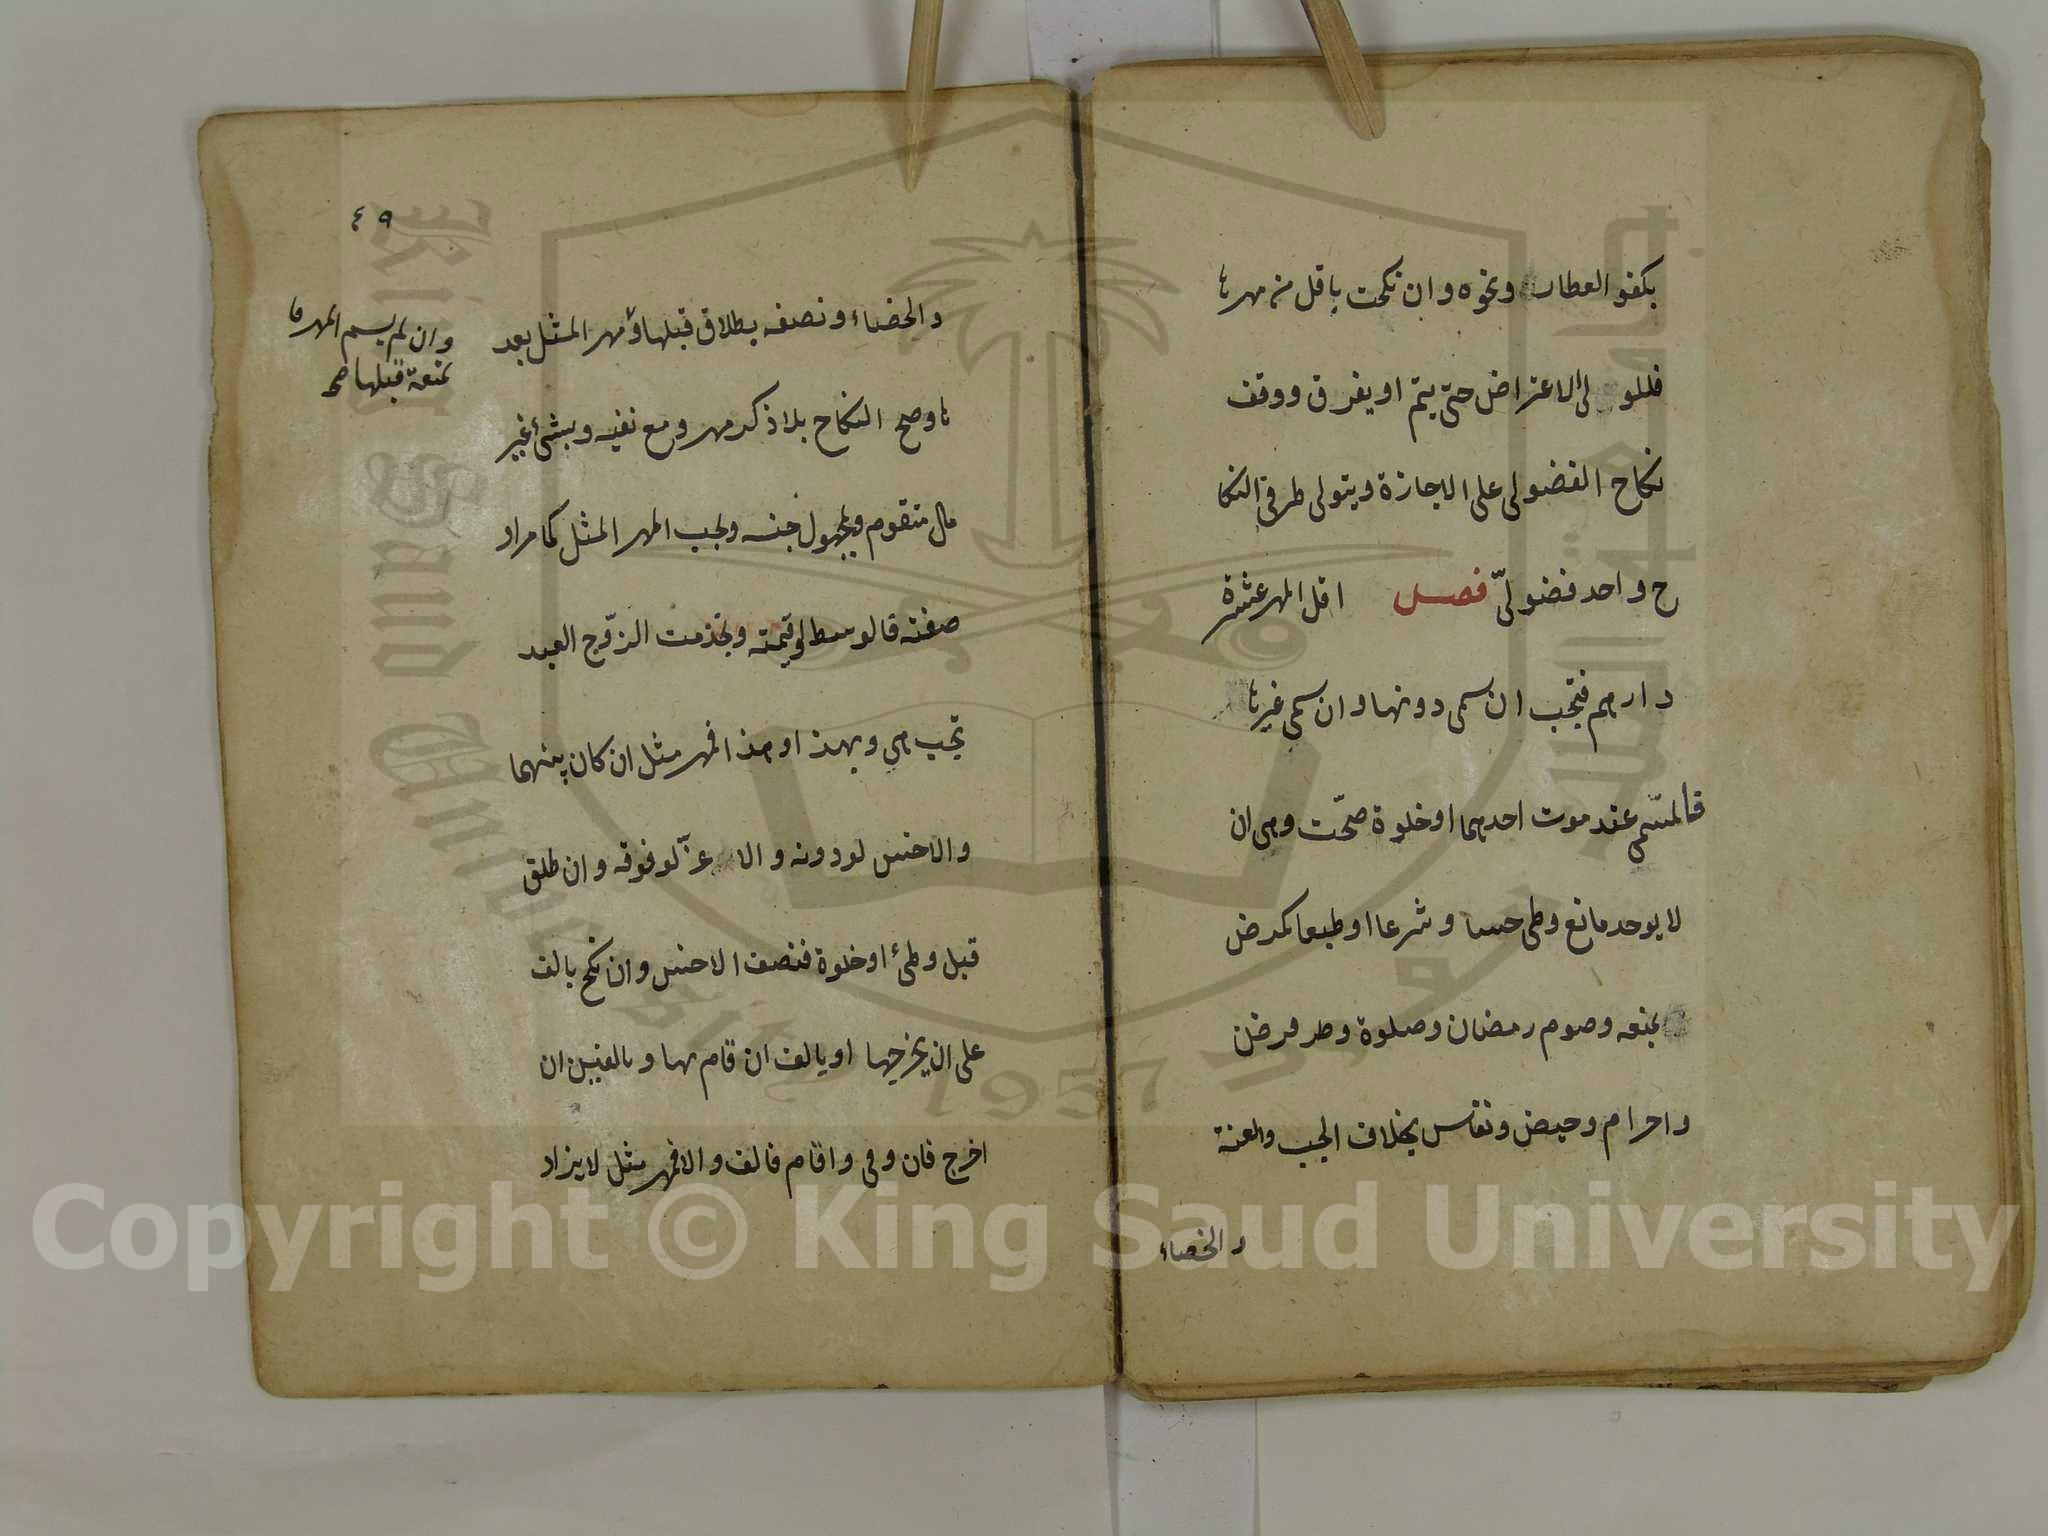 بكفو العطار ونحوه وان نكحت باقل من مهرها
فللو لى الاعتراض حتى يتم او يفرق ووقف
نكاح الفضولى على الاجازة ويتولى طرفى النكا
ح واحد فضولىّ فصل اقل المهر عشرة
دارهم فتجب ان سمى دونها وان سمى غيرها
فالمسّمى عند موت احدهما او خلوة صحّت وهى ان
لا يوجد مانع وطى حسا وشرعا او طبعا كمرض
يمنعه وصوم رمضان وصلوة فرض
واحرام وحيض ونفاس بخلاف الجب والعنة
والخصاء
٤٩
والخصاء ونصفه بطلاق قبلها ومهر المثل بعد
ها وصح النكاح بلا ذكر مهر ومع نفيه وبشئ غير
مال متقوم وبمجهول جنسه ويجب المهر المثل كما مراد
صفته فالوسط او قيمته وبخذمت الزوّج العبد
تجب هى وبهذا او هذا فمهر مثل ان كان بينهما
والاخس لو دونه والا عزّ لو فوقه وان طلق
قبل وطئ او خلوة فنصف الاخس وان نكح بالف
على ان يخرجها او بالف ان قام بها وبالفين ان
اخرج فان وفى واقام فالف والا فمهر مثل لا يزاد
وان لم يسم المهر فا
لمتعة قبلها صح
Copyright © King Saud University
King Saud University
جامعة الملك سعود
1957